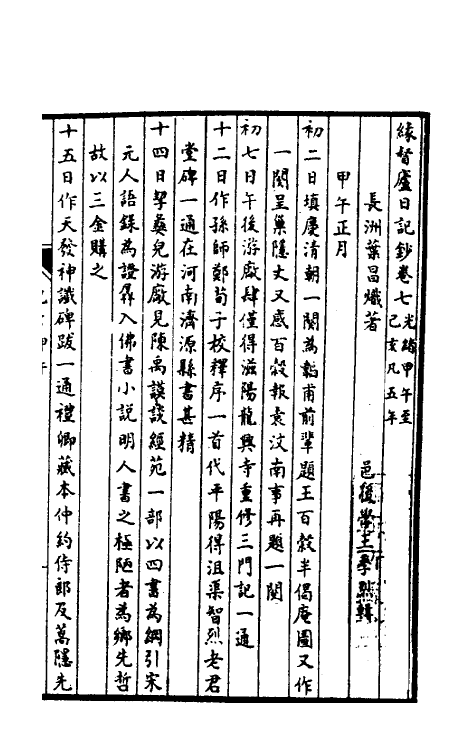 緣督廬日記鈔卷七光緒甲午至
己亥凡五年
長洲葉昌熾著
邑後學王季烈輯
甲午正月
初二日填慶清朝一闋為韜甫前輩題王百穀半偈庵圖又作
一闋呈巢隱丈又感百穀報袁汶南事再題一闋
初七日午後游廠肆僅得滋陽龍興寺重修三門記一通
十二日作孫師鄭荀子校釋序一首代平陽得沮渠智烈老君
堂碑一通在河南濟源縣書甚精
十四日挈彝兒游廠見陳禹謨談經苑一部以四書為綱引宋
元人語錄為證羼入佛書小說明人書之極陋者為鄉先哲
故以三金購之
十五日作天發神讖碑跋一通禮卿藏本仲約侍郎及萬隱先